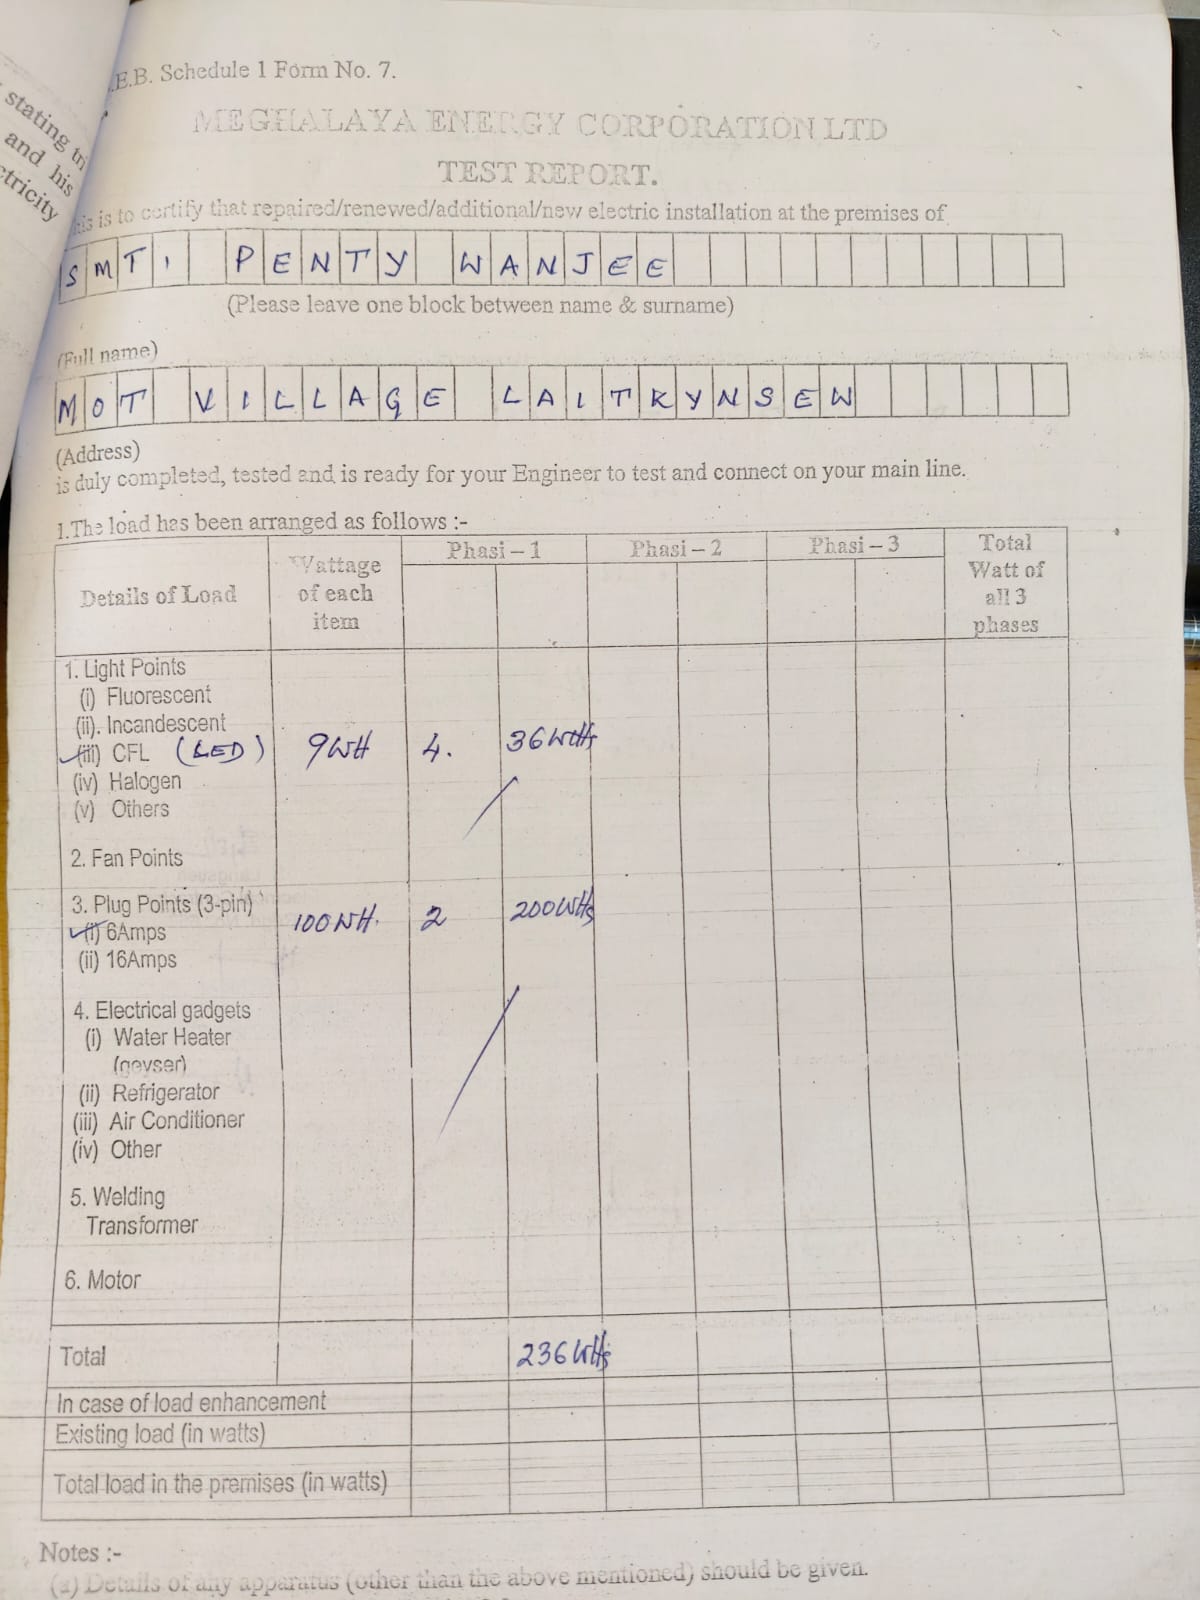 stating th
and his
ctricity
.E.B. Schedule 1 Form No. 7.
MEGHALAYA ENERGY CORPORATION LTD
TEST REPORT.
his is to certify that repaired/renewed/additional/new electric installation at the premises of
SMTI PENTY WANJEE
(Please leave one block between name & surname)
(Full name)
MOT VILLAGE LAITKYNSEW
(Address)
is duly completed, tested and is ready for your Engineer to test and connect on your main line.
1.The load has been arranged as follows :-
Details of Load Wattage of each item Phasi – 1 Phasi – 2 Phasi – 3 Total Watt of all 3 phases
1. Light Points
(i) Fluorescent
(ii). Incandescent
(iii) CFL (LED) 9WH 4. 36WHs
(iv) Halogen
(v) Others
2. Fan Points
3. Plug Points (3-pin)
(i) 6Amps 100WH. 2 200WHs
(ii) 16Amps
4. Electrical gadgets
(i) Water Heater
(geyser)
(ii) Refrigerator
(iii) Air Conditioner
(iv) Other
5. Welding
Transformer
6. Motor
Total 236WHs
In case of load enhancement
Existing load (in watts)
Total load in the premises (in watts)
Notes :-
(a) Details of any apparatus (other than the above mentioned) should be given.